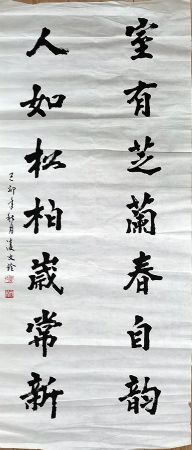 室有芝蘭春自韵
人如松柏歲常新
己卯年秋月凌文銓